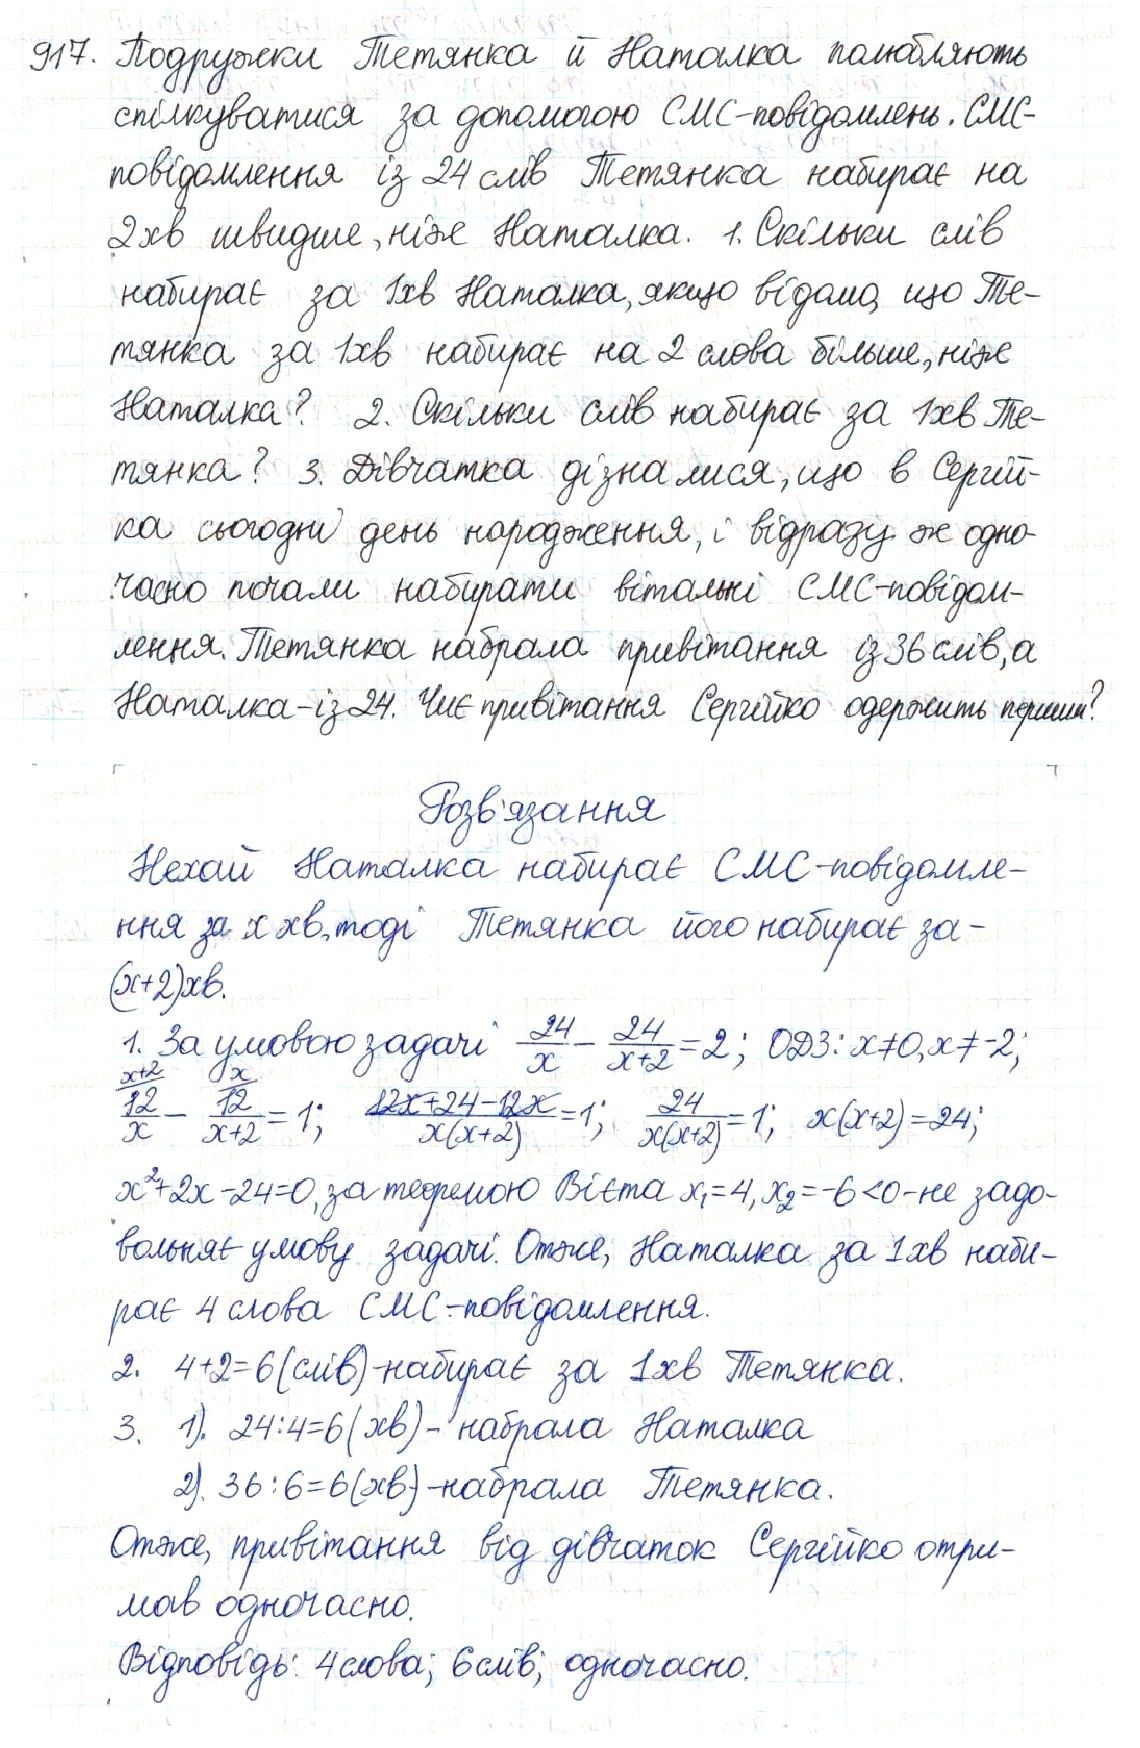 917. Подружки Тетянка й Наталка полюбляють
спілкуватися за допомогою СМС-повідомлень. СМС-
повідомлення із 24 слів Тетянка набирає на
2хв швидше, ніж Наталка. 1. Скільки слів
набирає за 1хв Наталка, якщо відомо, що Те-
тянка за 1хв набирає на 2 слова більше, ніж
Наталка? 2. Скільки слів набирає за 1хв Те-
тянка? 3. Дівчатка дізналися, що в Сергій-
ка сьогодні день народження, і відразу ж одно-
часно почали набирати вітальні СМС-повідом-
лення. Тетянка набрала привітання із 36 слів, а
Наталка-із 24. Чиє привітання Сергійко одержить першим?
Розв'язання
Нехай Наталка набирає СМС-повідомле-
ння за x хв, тоді Тетянка його набирає за-
(x+2)хв.
1. За умовою задачі 24/x - 24/(x+2) = 2; ОДЗ: x≠0, x≠-2;
x+2 x
12/x - 12/(x+2) = 1; (12x+24-12x)/(x(x+2)) = 1; 24/(x(x+2)) = 1; x(x+2)=24;
x²+2x-24=0, за теоремою Вієта x₁=4, x₂=-6<0-не задо-
вольняє умову задачі. Отже, Наталка за 1хв наби-
рає 4 слова СМС-повідомлення.
2. 4+2=6(слів)-набирає за 1хв Тетянка.
3. 1). 24:4=6(хв)-набрала Наталка
2). 36:6=6(хв)-набрала Тетянка.
Отже, привітання від дівчаток Сергійко отри-
мав одночасно.
Відповідь: 4слова; 6слів; одночасно.